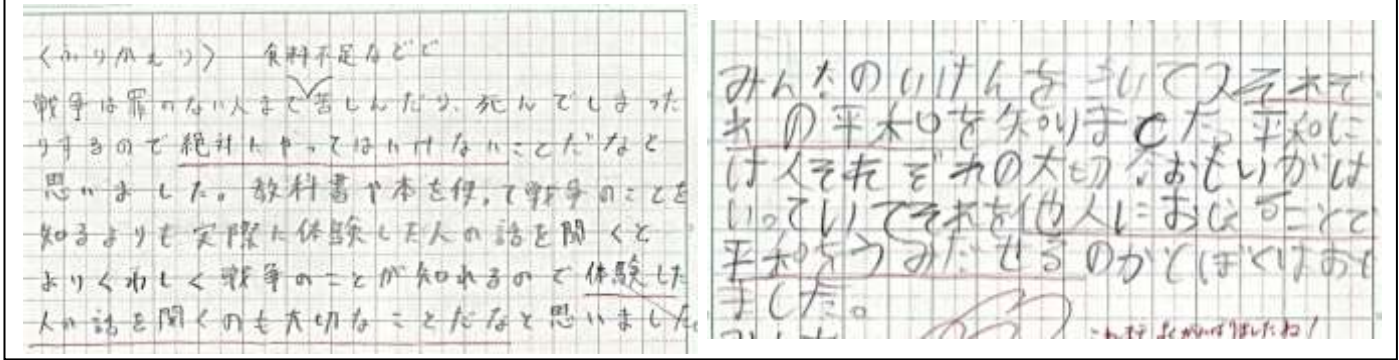 〈ふりかえり〉 食料不足などで
戦争は罪のない人まで苦しんだり、死んでしまった
りするので絶対にやってはいけないことだなと
思いました。教科書や本を使って戦争のことを
知るよりも実際に体験した人の話を聞くと
よりくわしく戦争のことが知れるので体験した
人の話を聞くのも大切なことだなと思いました。
みんなのいけんをきいて、それぞ
れの平和を知りました。平和に
は人それぞれの大切なおもいがは
いっていてそれを他人におしることで
平和をうみだせるのかとぼくはおも
ました。
これまでよくがんばりましたね!